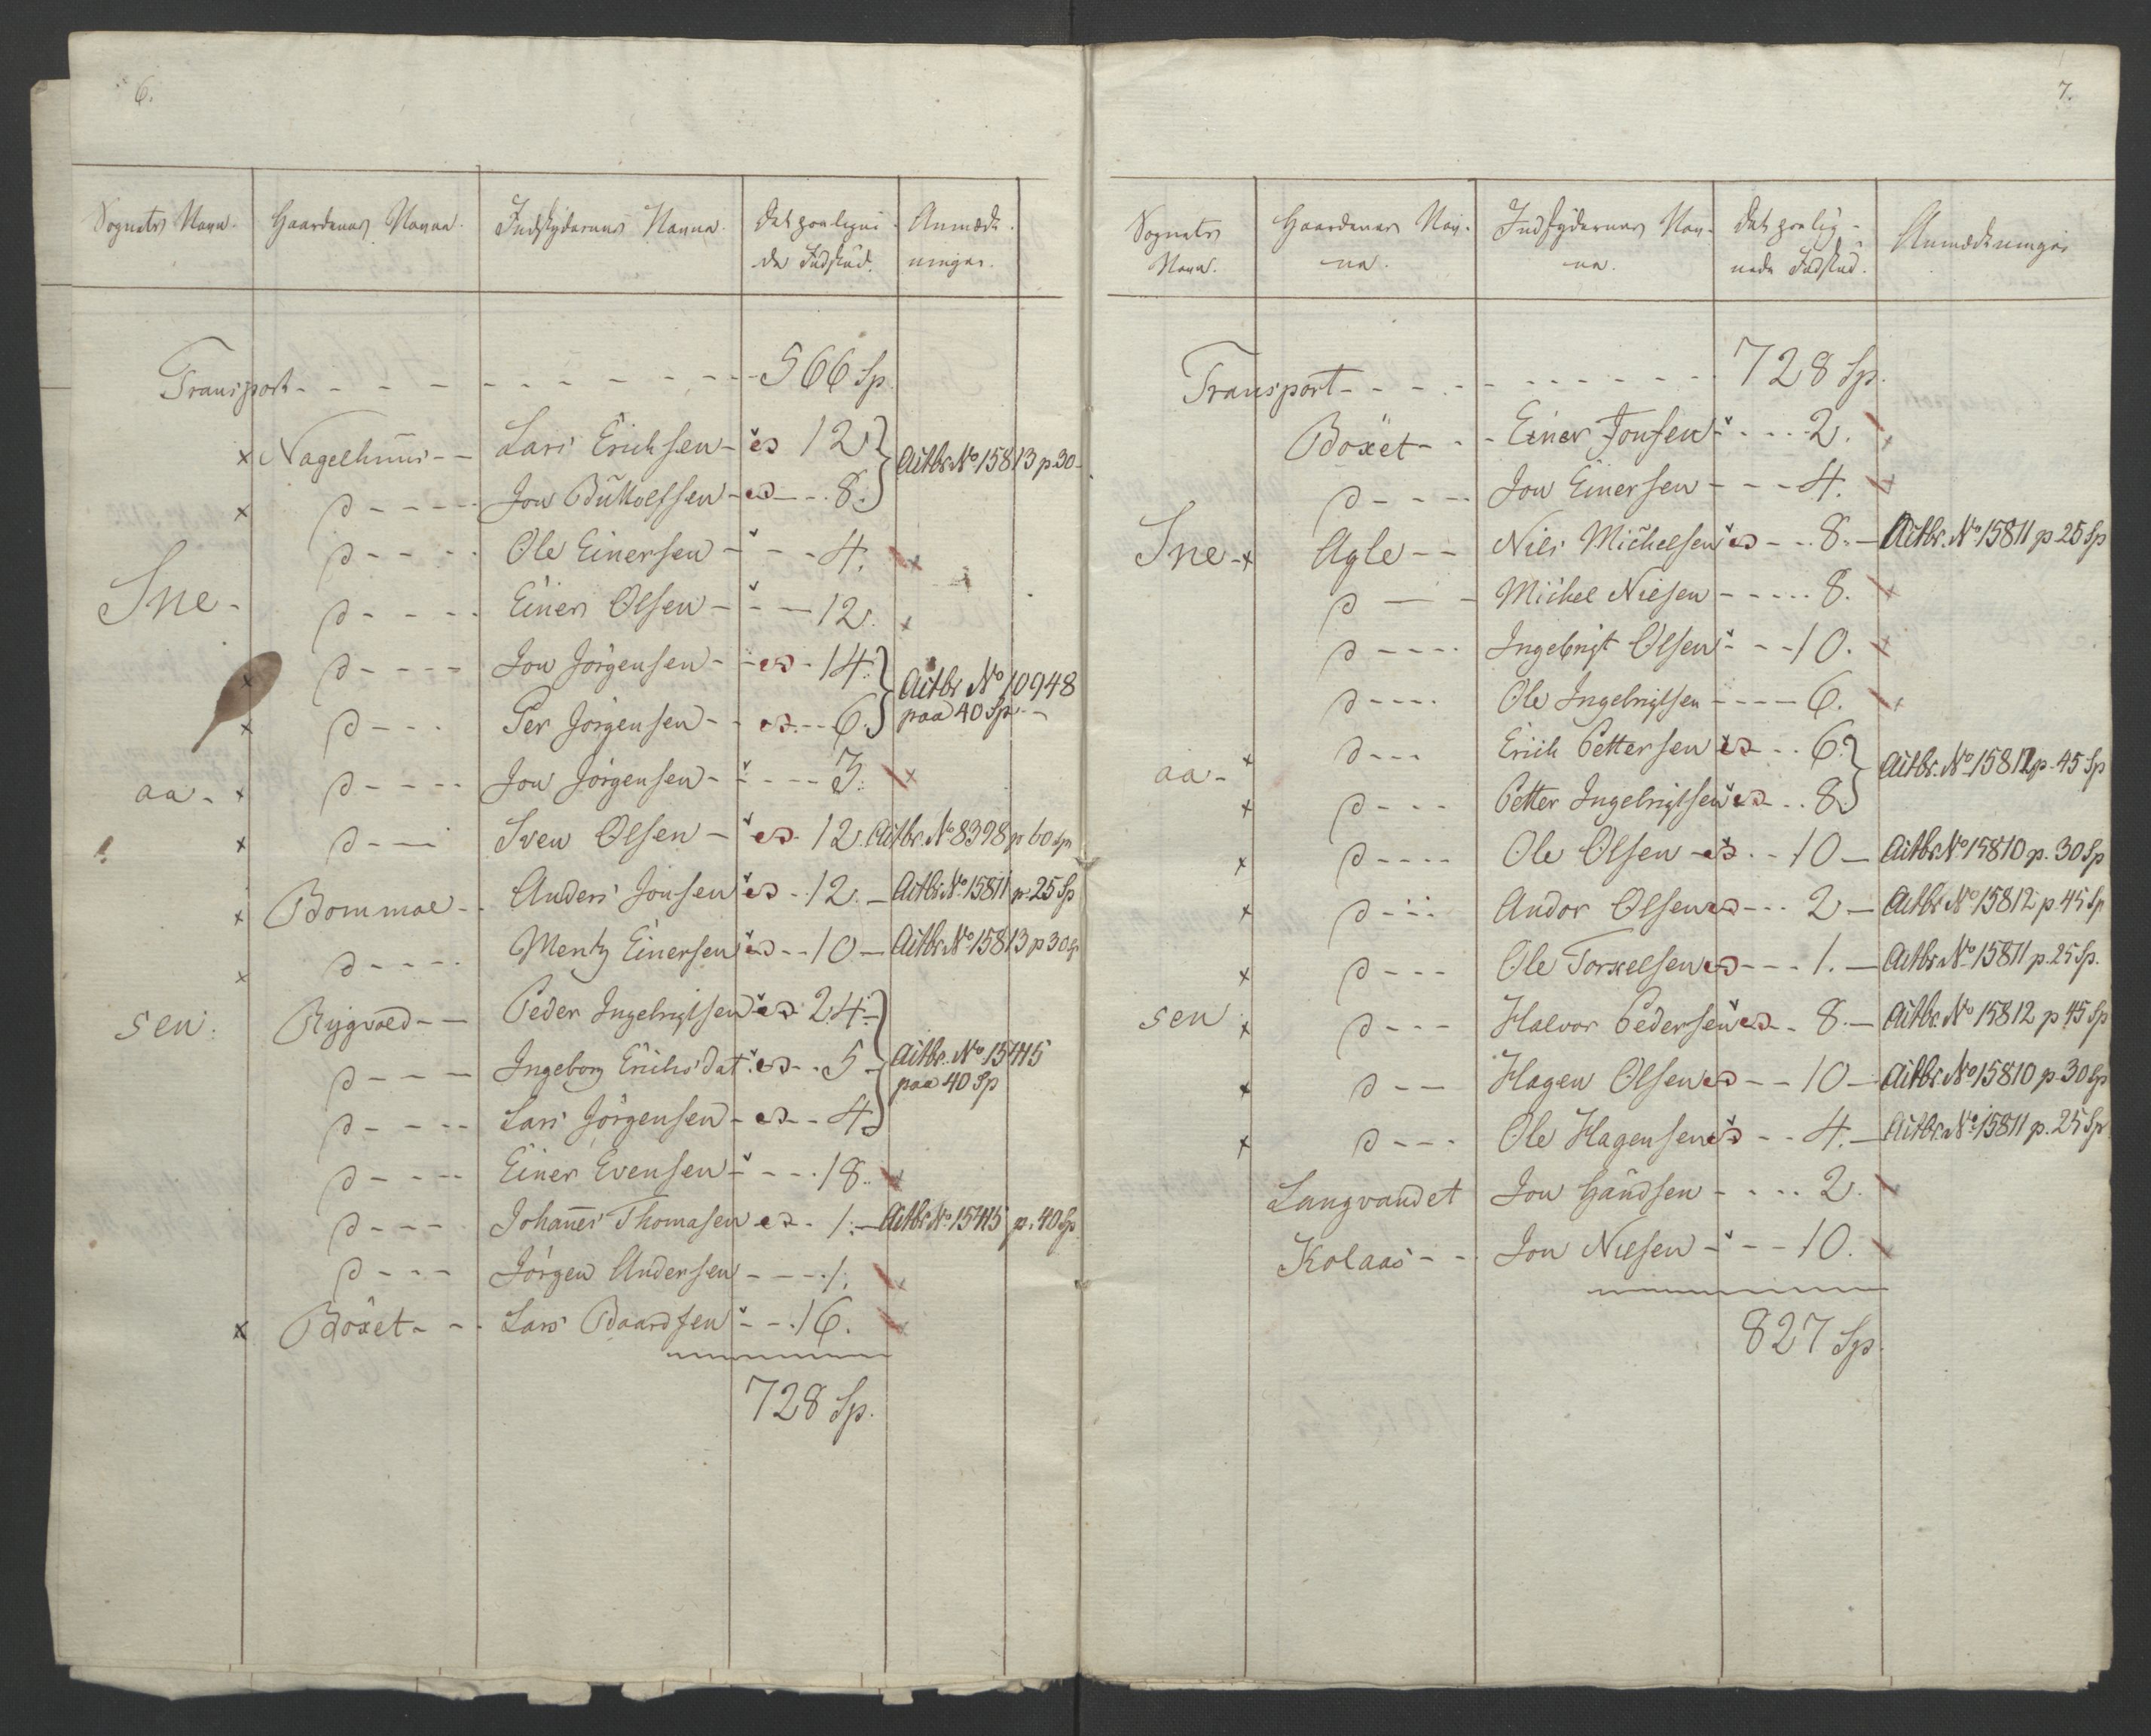 6.
Sognets Navn. Gaardenes Navne. Indskydernes Navne. Det paalignede Indskud. Anmærkninger.
Transport - - - - - - - - - - - 566 Sp.
x Nagelhuus - - Lars Erichsen - 12 } Actbr No 15813 p 30
x d - - - - Jon Buttolfsen - - - 8. }
d - - - - Ole Einersen - - - 4. x
Sne- d - - - - Einer Olsen - - - 12. x
x d - - - - Jon Jörgensen - - 14. } Actbr No 10948
x d - - - Per Jörgensen - - - 6. } paa 40 Sp. -
aa - x d - - - - Jon Jörgensen - - - - 3. x
x d - - - Sven Olsen - 12. Actbr. No 8398 p 60 Sp
x Bommoe - - Anders Jonsen - 12. - Actbr No 15811 p. 25 Sp
x d - - - - Mentz Einersen - - 10 - Actbr. No 15813 p 30 Sp
sen. Rygvold - - Peder Ingebrigtsen 24. }
d - - - Ingeborg Erichsdat. - - 5 } Actbr. No 15415
paa 40 Sp
d - - - - Lars Jörgensen - - - 4. }
d - - - - Einer Evensen - - - - 18. x
d - - - - Johannes Thomasen - 1. - Actbr No 15415 p. 40 Sp
d - - - Jörgen Andersen - - - - 1. x
x Böxet - - - Lars Baardsen - - 16. x
728 Sp.
7.
Sognets Navn. Gaardenes Navne. Indskydernes Navne. Det paalignede Indskud. Anmærkninger
Transport - - - - - - - - - - - 728 Sp.
Böxet - - - Einer Jonsen - - - 2. x
d - - - - Jon Einersen - - - 4. x
Sne - x Agle - - Nils Michelsen - - 8. - Actbr. No 15811 p 25 Sp
d - - Michel Nielsen - - - - - 8. x
d - - - - Ingebrigt Olsen - - - 10. x
d - - - - Ole Ingebrigtsen - - - - 6. x
aa - x d - - - Erich Pettersen - - 6. } Actbr. No 15812 p. 45 Sp
x d - - - Petter Ingebrigtsen - - 8. }
x d - - - - Ole Olsen - - - 10 - Actbr. No 15810 p. 30 Sp
x d - - - Andor Olsen - - - 2 - Actbr No 15812 p 45 Sp
x d - - - Ole Torkelsen - - - 1. - Actbr No 15811 p. 25 Sp.
sen x d - - - Halvor Pedersen - - 8. - Actbr. No 15812 p 45 Sp
x d - - Hagen Olsen - - 10 - Actbr. No 15810 p. 30 Sp
x d - - - Ole Hagensen - - 4. - Actbr. No 15811 p. 25 Sp
Langvandet Jon Gundsen - - - - 2.
Kolaas - - Jon Nielsen - - - 10.
827 Sp.